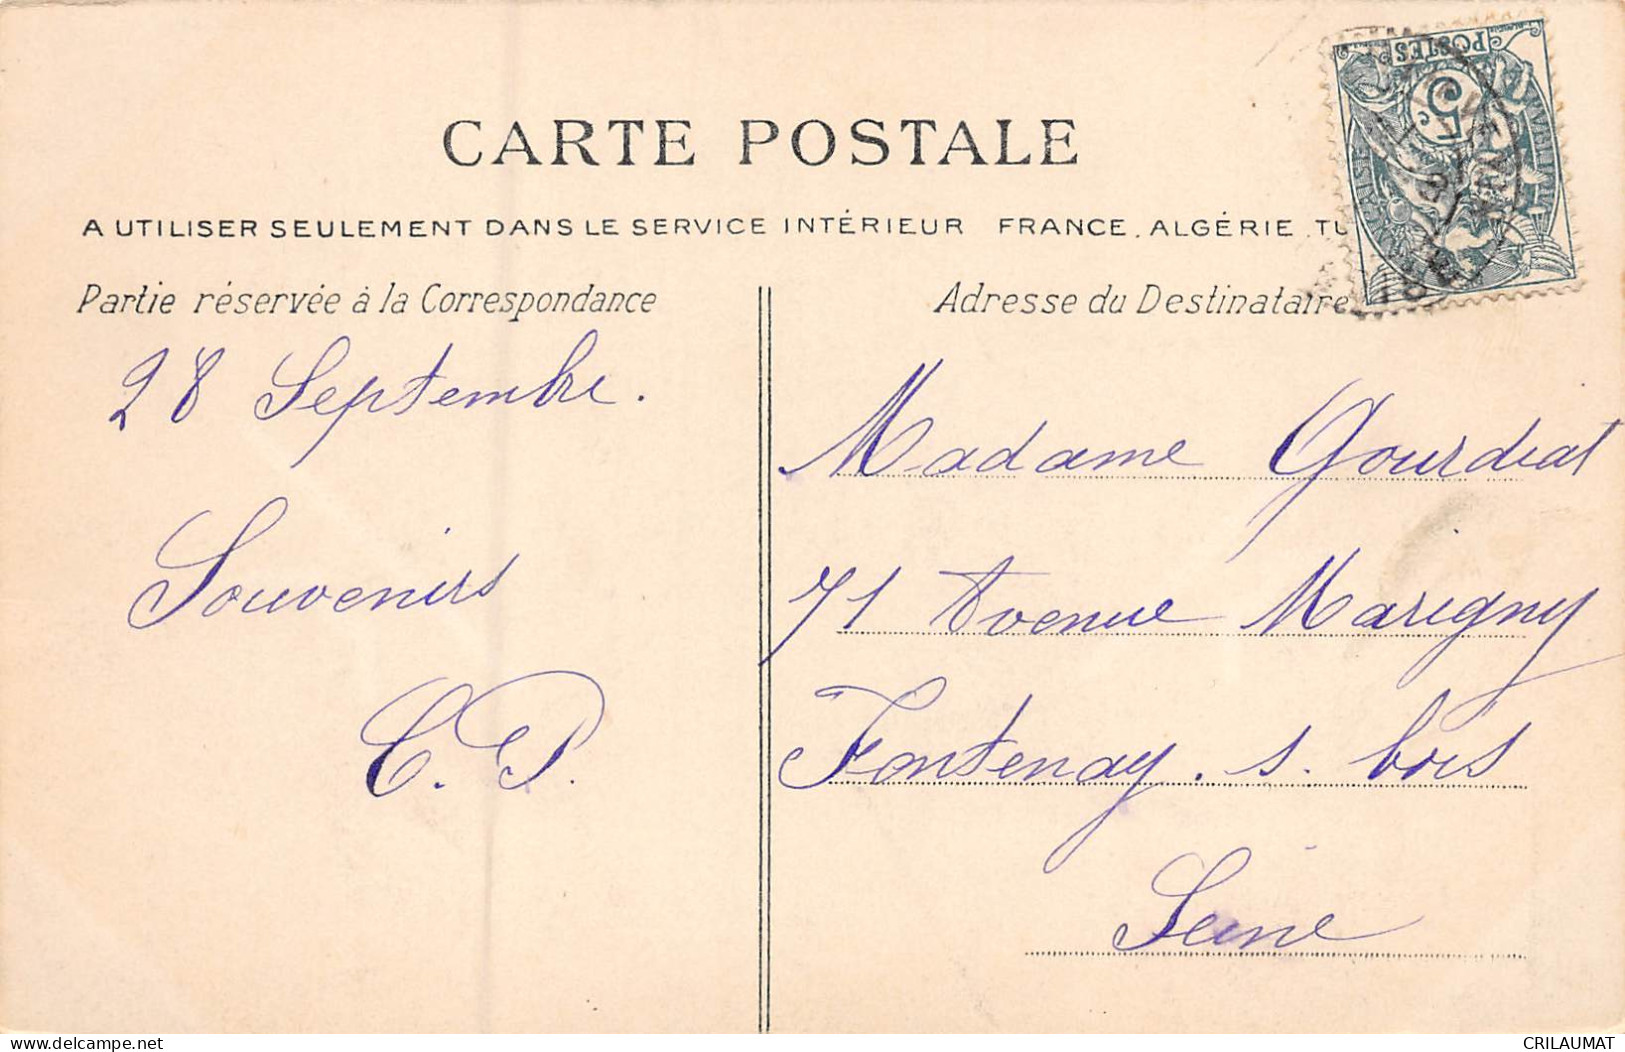 CARTE POSTALE
A UTILISER SEULEMENT DANS LE SERVICE INTÉRIEUR FRANCE. ALGÉRIE. TU
Partie réservée à la Correspondance
28 Septembre.
Souvenirs
C. P.
Adresse du Destinataire
Madame Gourdiat
71 Avenue Marigny
Fontenay. s. bois
Seine
POSTES
5c
www.delcampe.net
CRILAUMAT